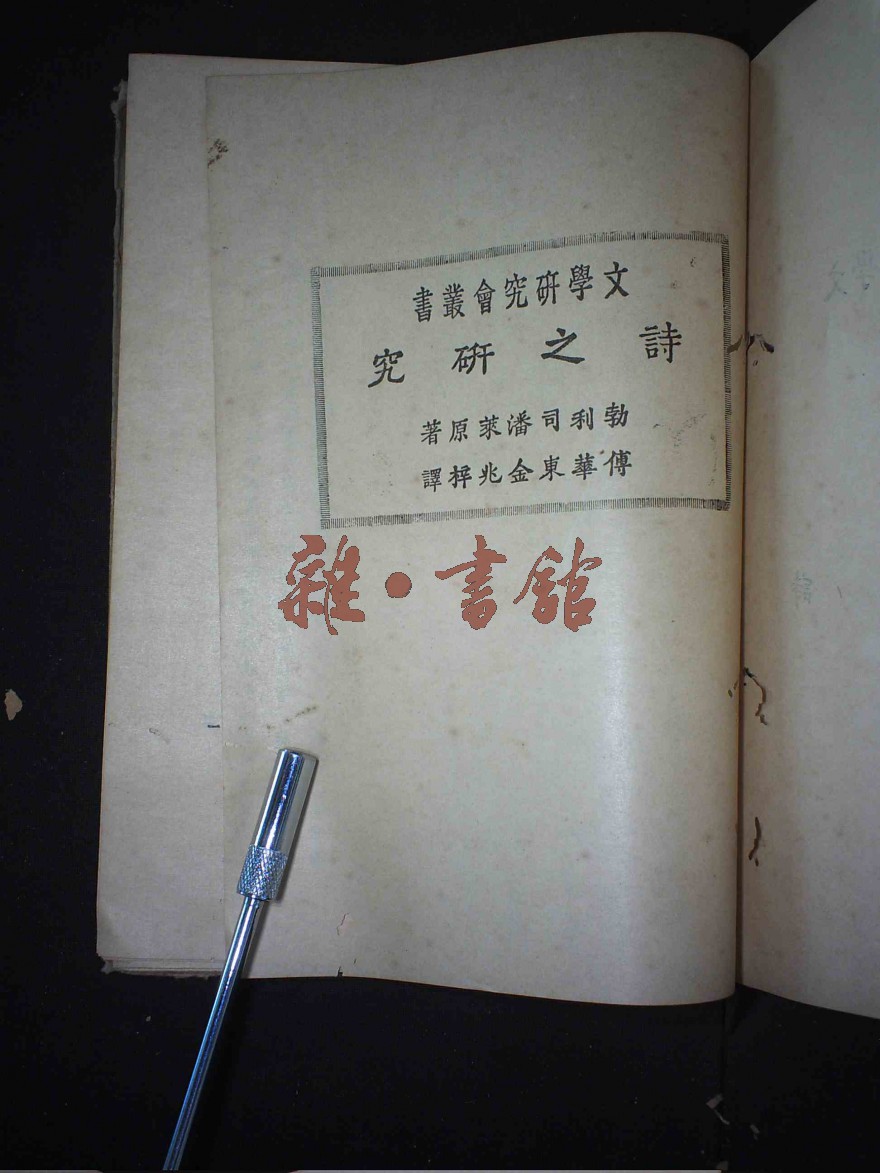 文學硏究會叢書
詩之硏究
勃利司潘萊原著
傅華東金兆梓譯
雜·書館